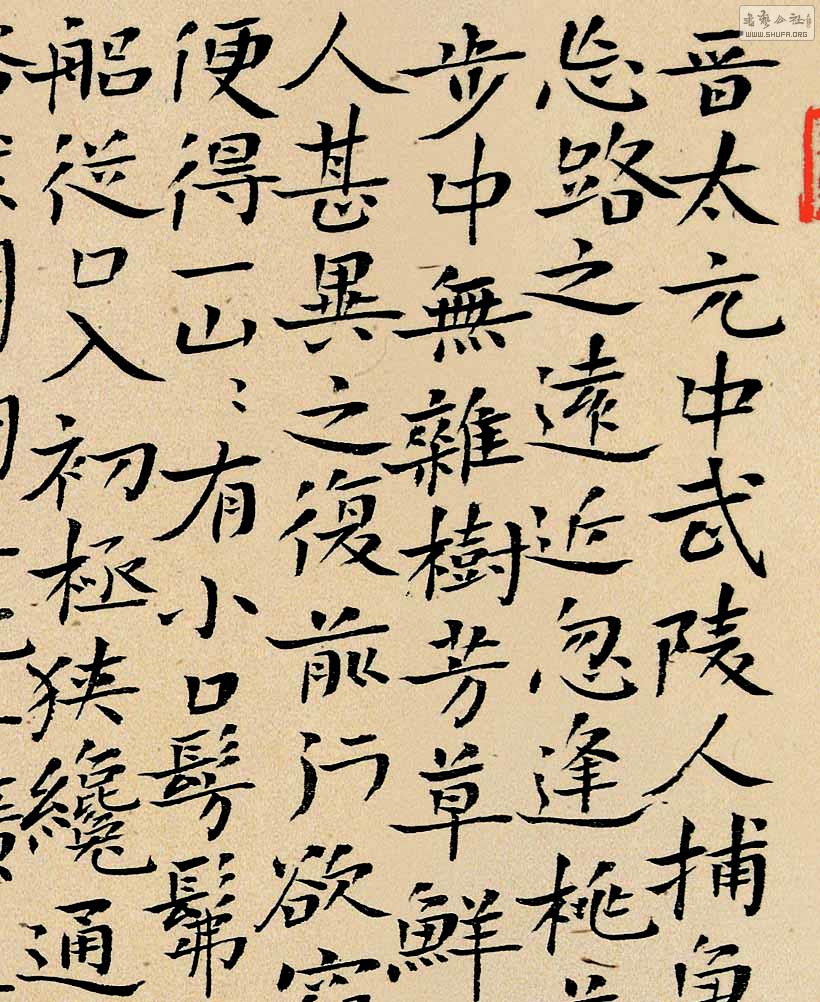 晋太元中武陵人捕魚
忘路之遠近忽逢桃
步中無雜樹芳草鮮
人甚異之復前行欲窮
便得一山〻有小口髣髴
船從口入初極狹纔通
书艺公社
WWW.SHUFA.ORG